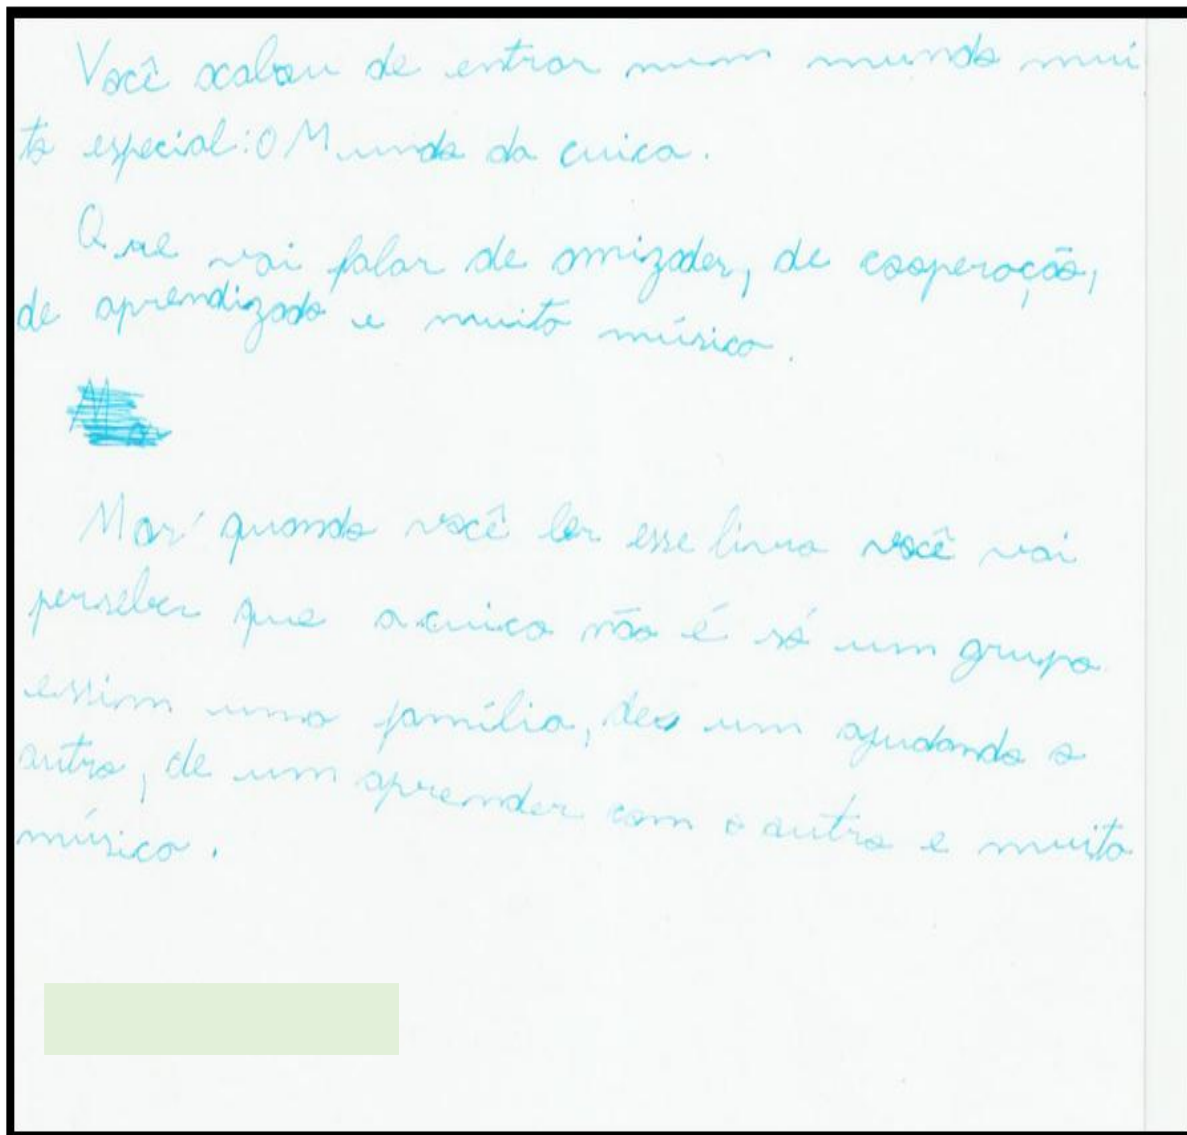 Você acabou de entrar num mundo mui
to especial: O Mundo da cuica.
Que vai falar de amizades, de cooperação,
de aprendizado e muito música.
Mas quando você ler esse livro você vai
perseber que a cuica não é só um grupo
essim uma família, des um ajudando o
outro, de um aprender com o outro e muita
música.